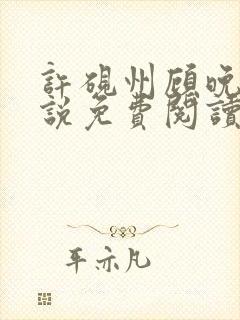 許硯州顧晚
說免費閱讀
平亦凡